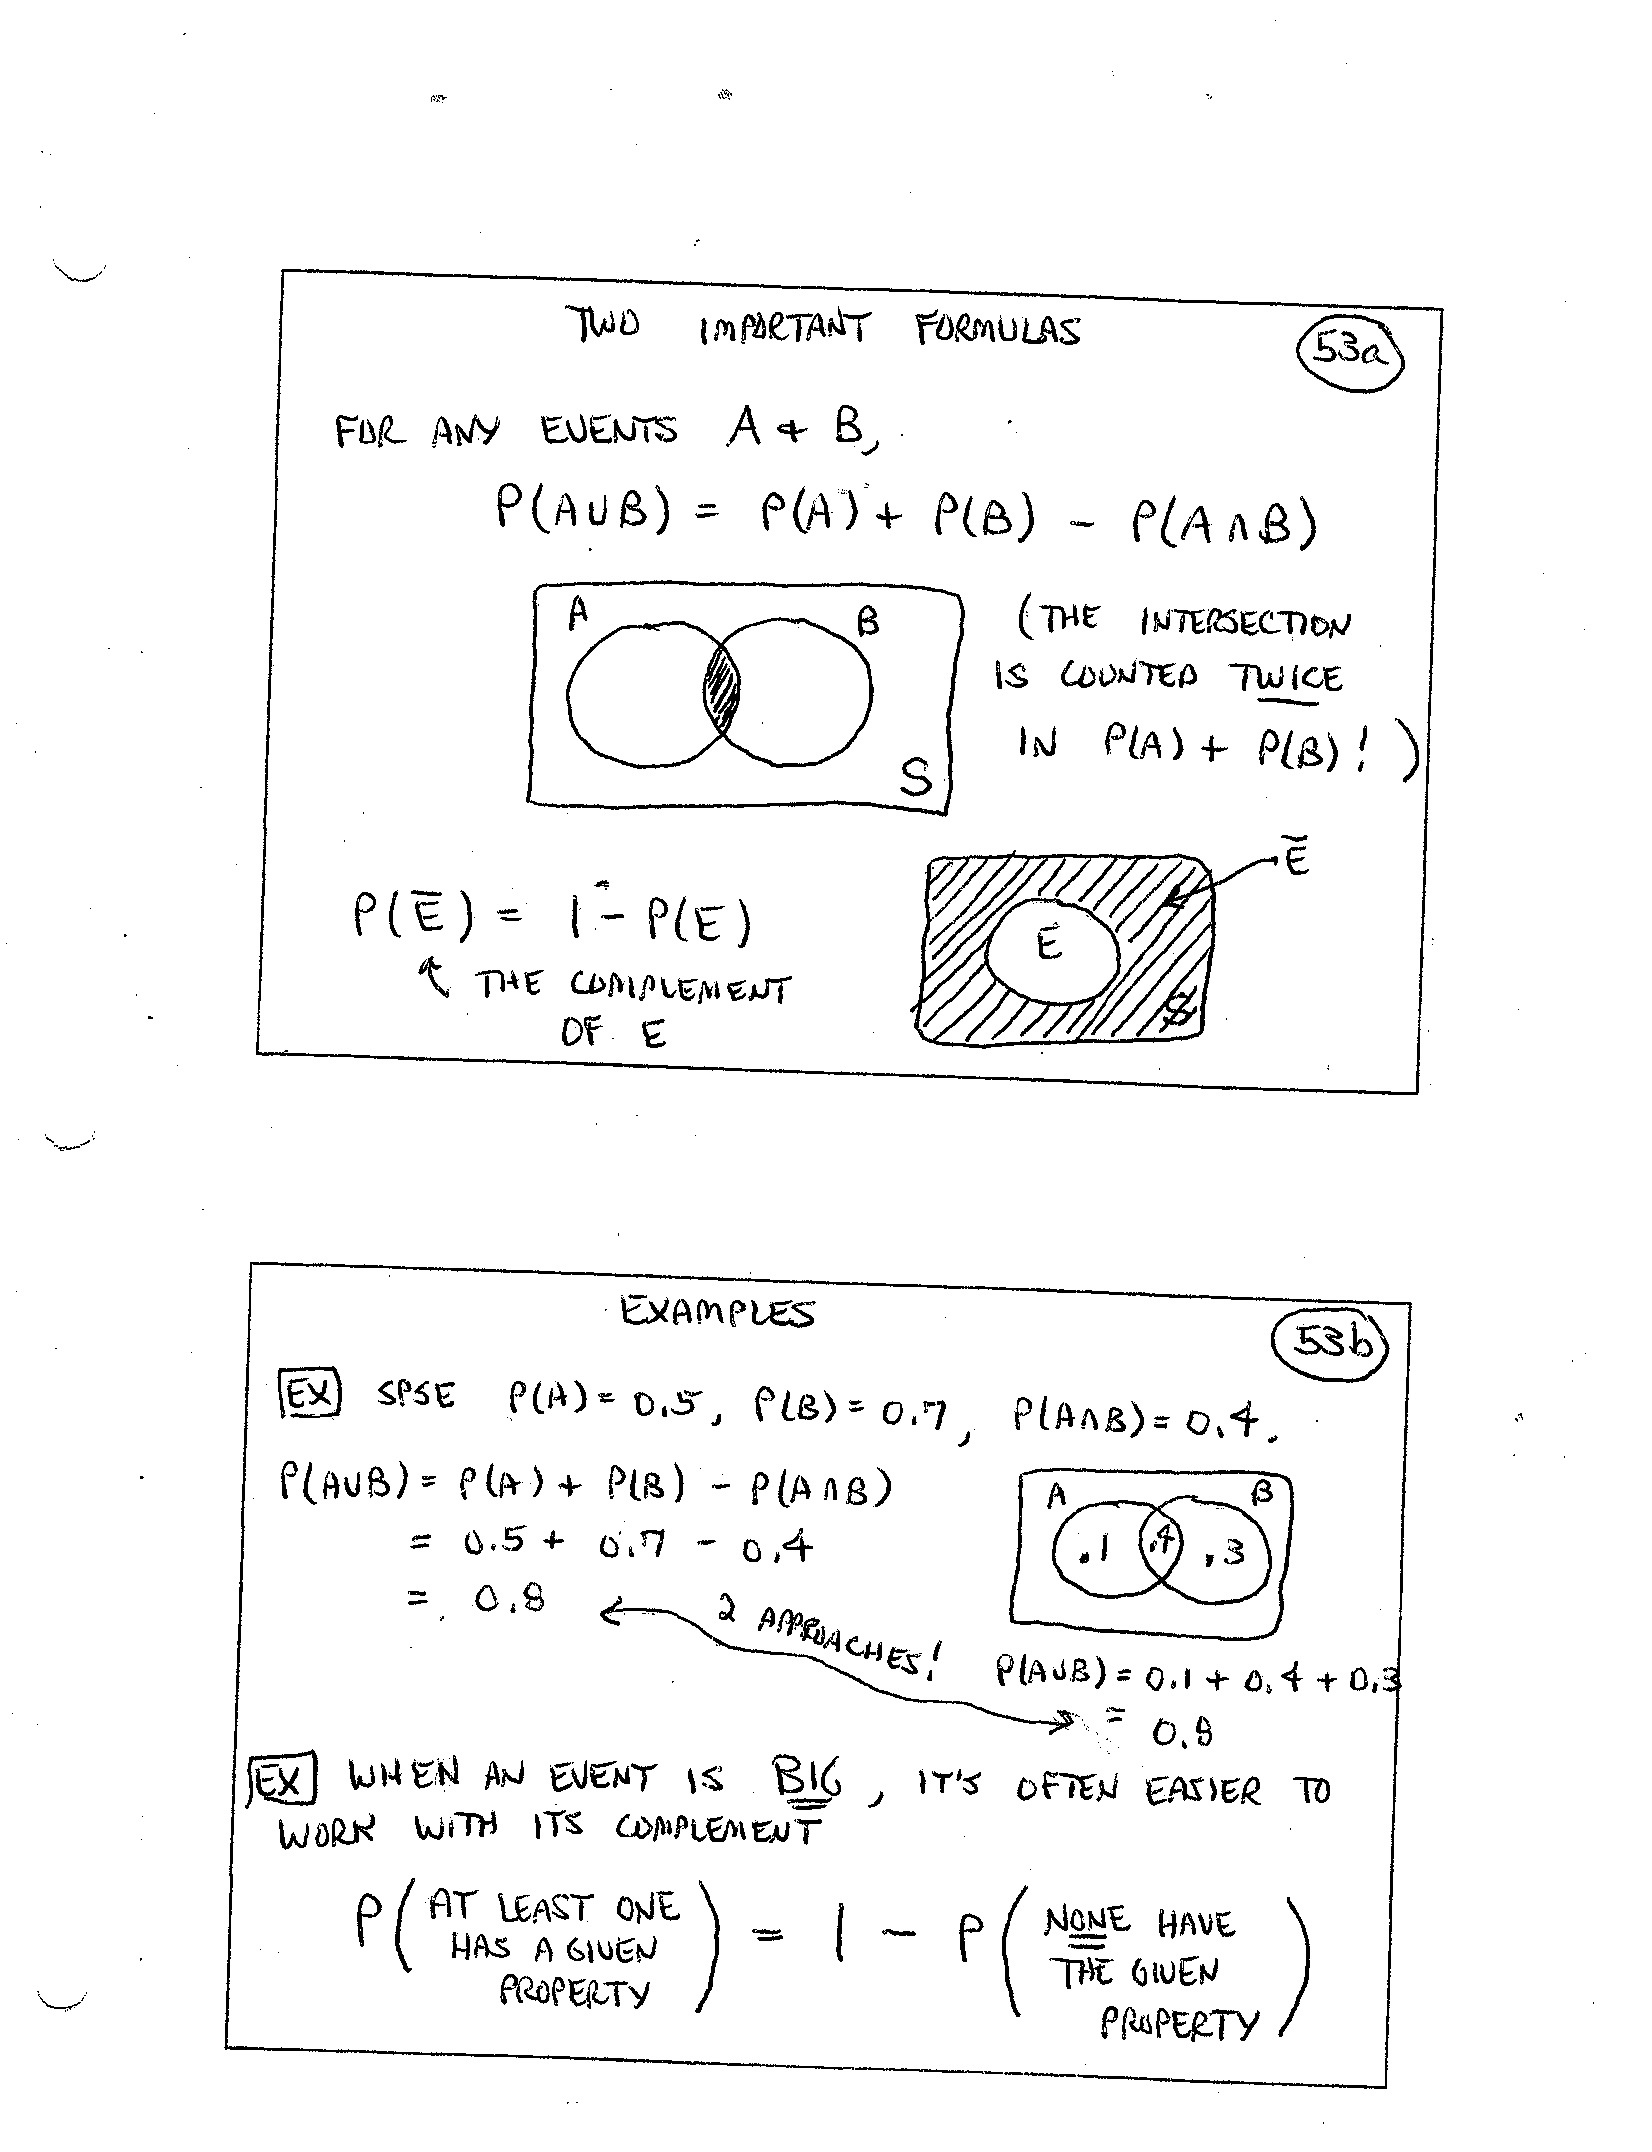 TWO IMPORTANT FORMULAS
53a
FOR ANY EVENTS A + B,
P(A∪B) = P(A) + P(B) - P(A∩B)
A
B
S
(THE INTERSECTION
IS COUNTED TWICE
IN P(A) + P(B)!)
P(E̅) = 1 - P(E)
THE COMPLEMENT
OF E
E̅
E
S
EXAMPLES
53b
EX SPSE P(A) = 0.5, P(B) = 0.7, P(A∩B) = 0.4.
P(A∪B) = P(A) + P(B) - P(A∩B)
= 0.5 + 0.7 - 0.4
= 0.8
2 APPROACHES!
A
B
.1 .4 .3
P(A∪B) = 0.1 + 0.4 + 0.3
= 0.8
EX WHEN AN EVENT IS BIG, IT'S OFTEN EASIER TO
WORK WITH ITS COMPLEMENT
P(AT LEAST ONE
HAS A GIVEN
PROPERTY) = 1 - P(NONE HAVE
THE GIVEN
PROPERTY)